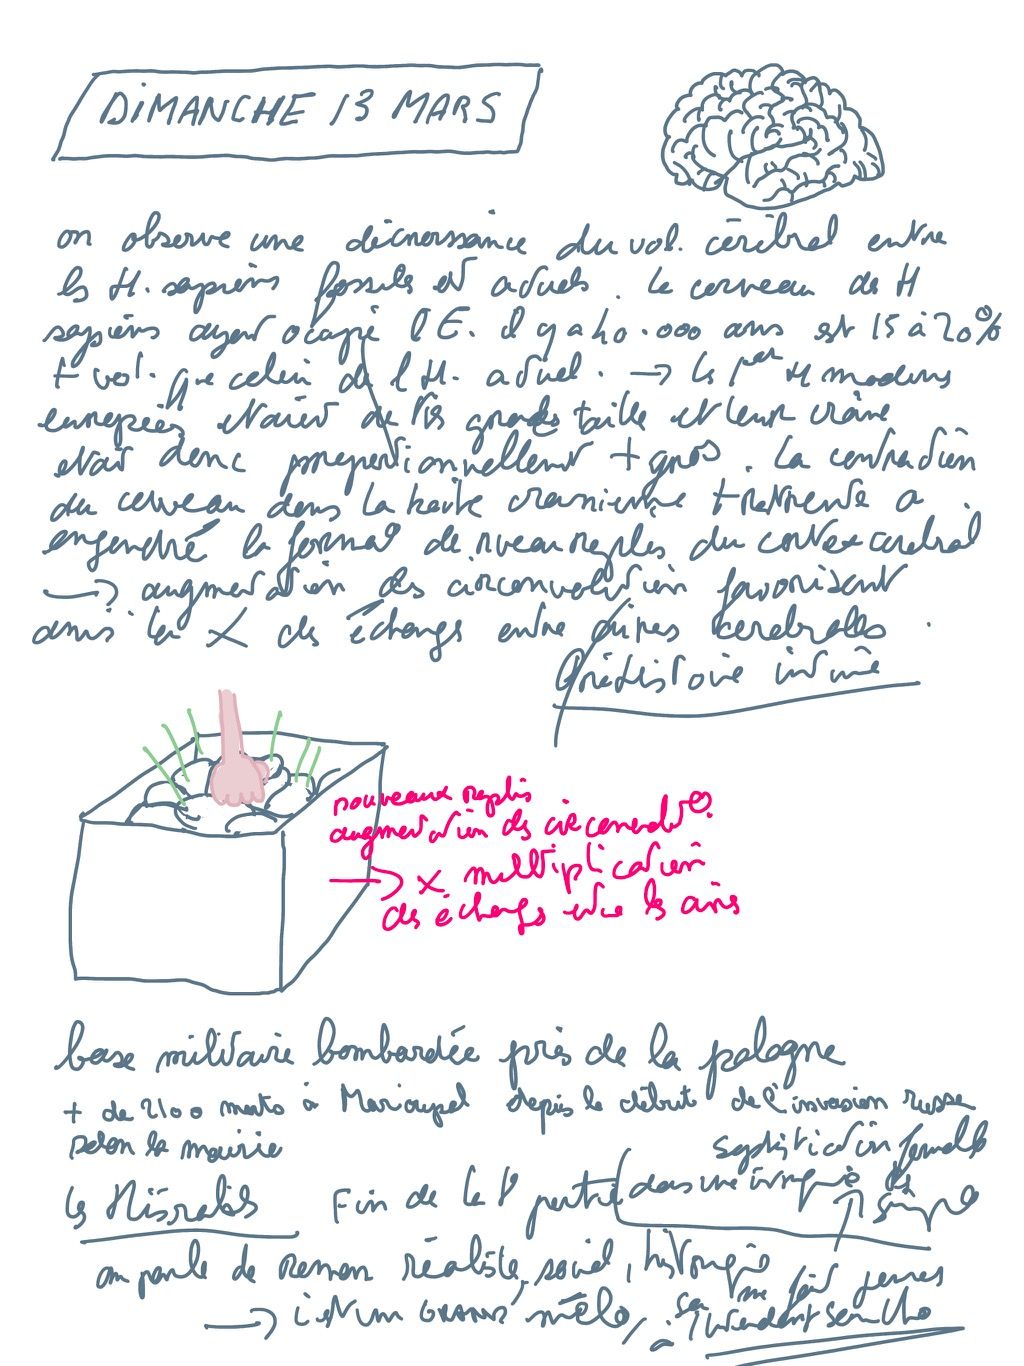 DIMANCHE 13 MARS
on observe une décroissance du vol. cérébral entre
les H. sapiens fossiles et actuels. Le cerveau de H
sapiens ayant occupé l'E. il y a 40.000 ans est 15 à 20%
+ vol. que celui de l'H. actuel. → les 1ers H modernes
européens étaient de très grande taille et leur crâne
était donc proportionnellement + gros. La contraction
du cerveau dans la boîte cranienne + restreinte a
engendré la format° de nveaux replis du cortex cérébral
→ augmentation des circonvolution favorisant
ainsi la X des échanges entre aires cérébrales.
Préhistoire intime
nouveaux replis
augmentation des circonvolut°.
→ X multiplication
des échanges entre les aires
base militaire bombardée près de la pologne
+ de 2100 morts à Marioupol depuis le début de l'invasion russe
selon la mairie
les Misérables Fin de la 1° partie dans une
simple
on parle de roman réaliste, social, historique
→ c'est un GRAND mélo,